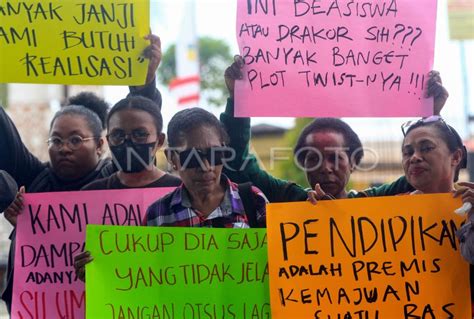 NYAK JANJI
AMI BUTUH
REALISASI
INI BEASISWA
ATAU DRAKOR SIH???
BANYAK BANGET
PLOT TWIST-NYA!!!
antarafoto
KAMI ADALAH
DAMPA
SI
CUKUP DIA SAJA
YANG TIDAK JELAS
JANGAN OTSUS LAGI
PENDIDIKAN
ADALAH PREMIS
KEMAJUAN
SUATU BAS